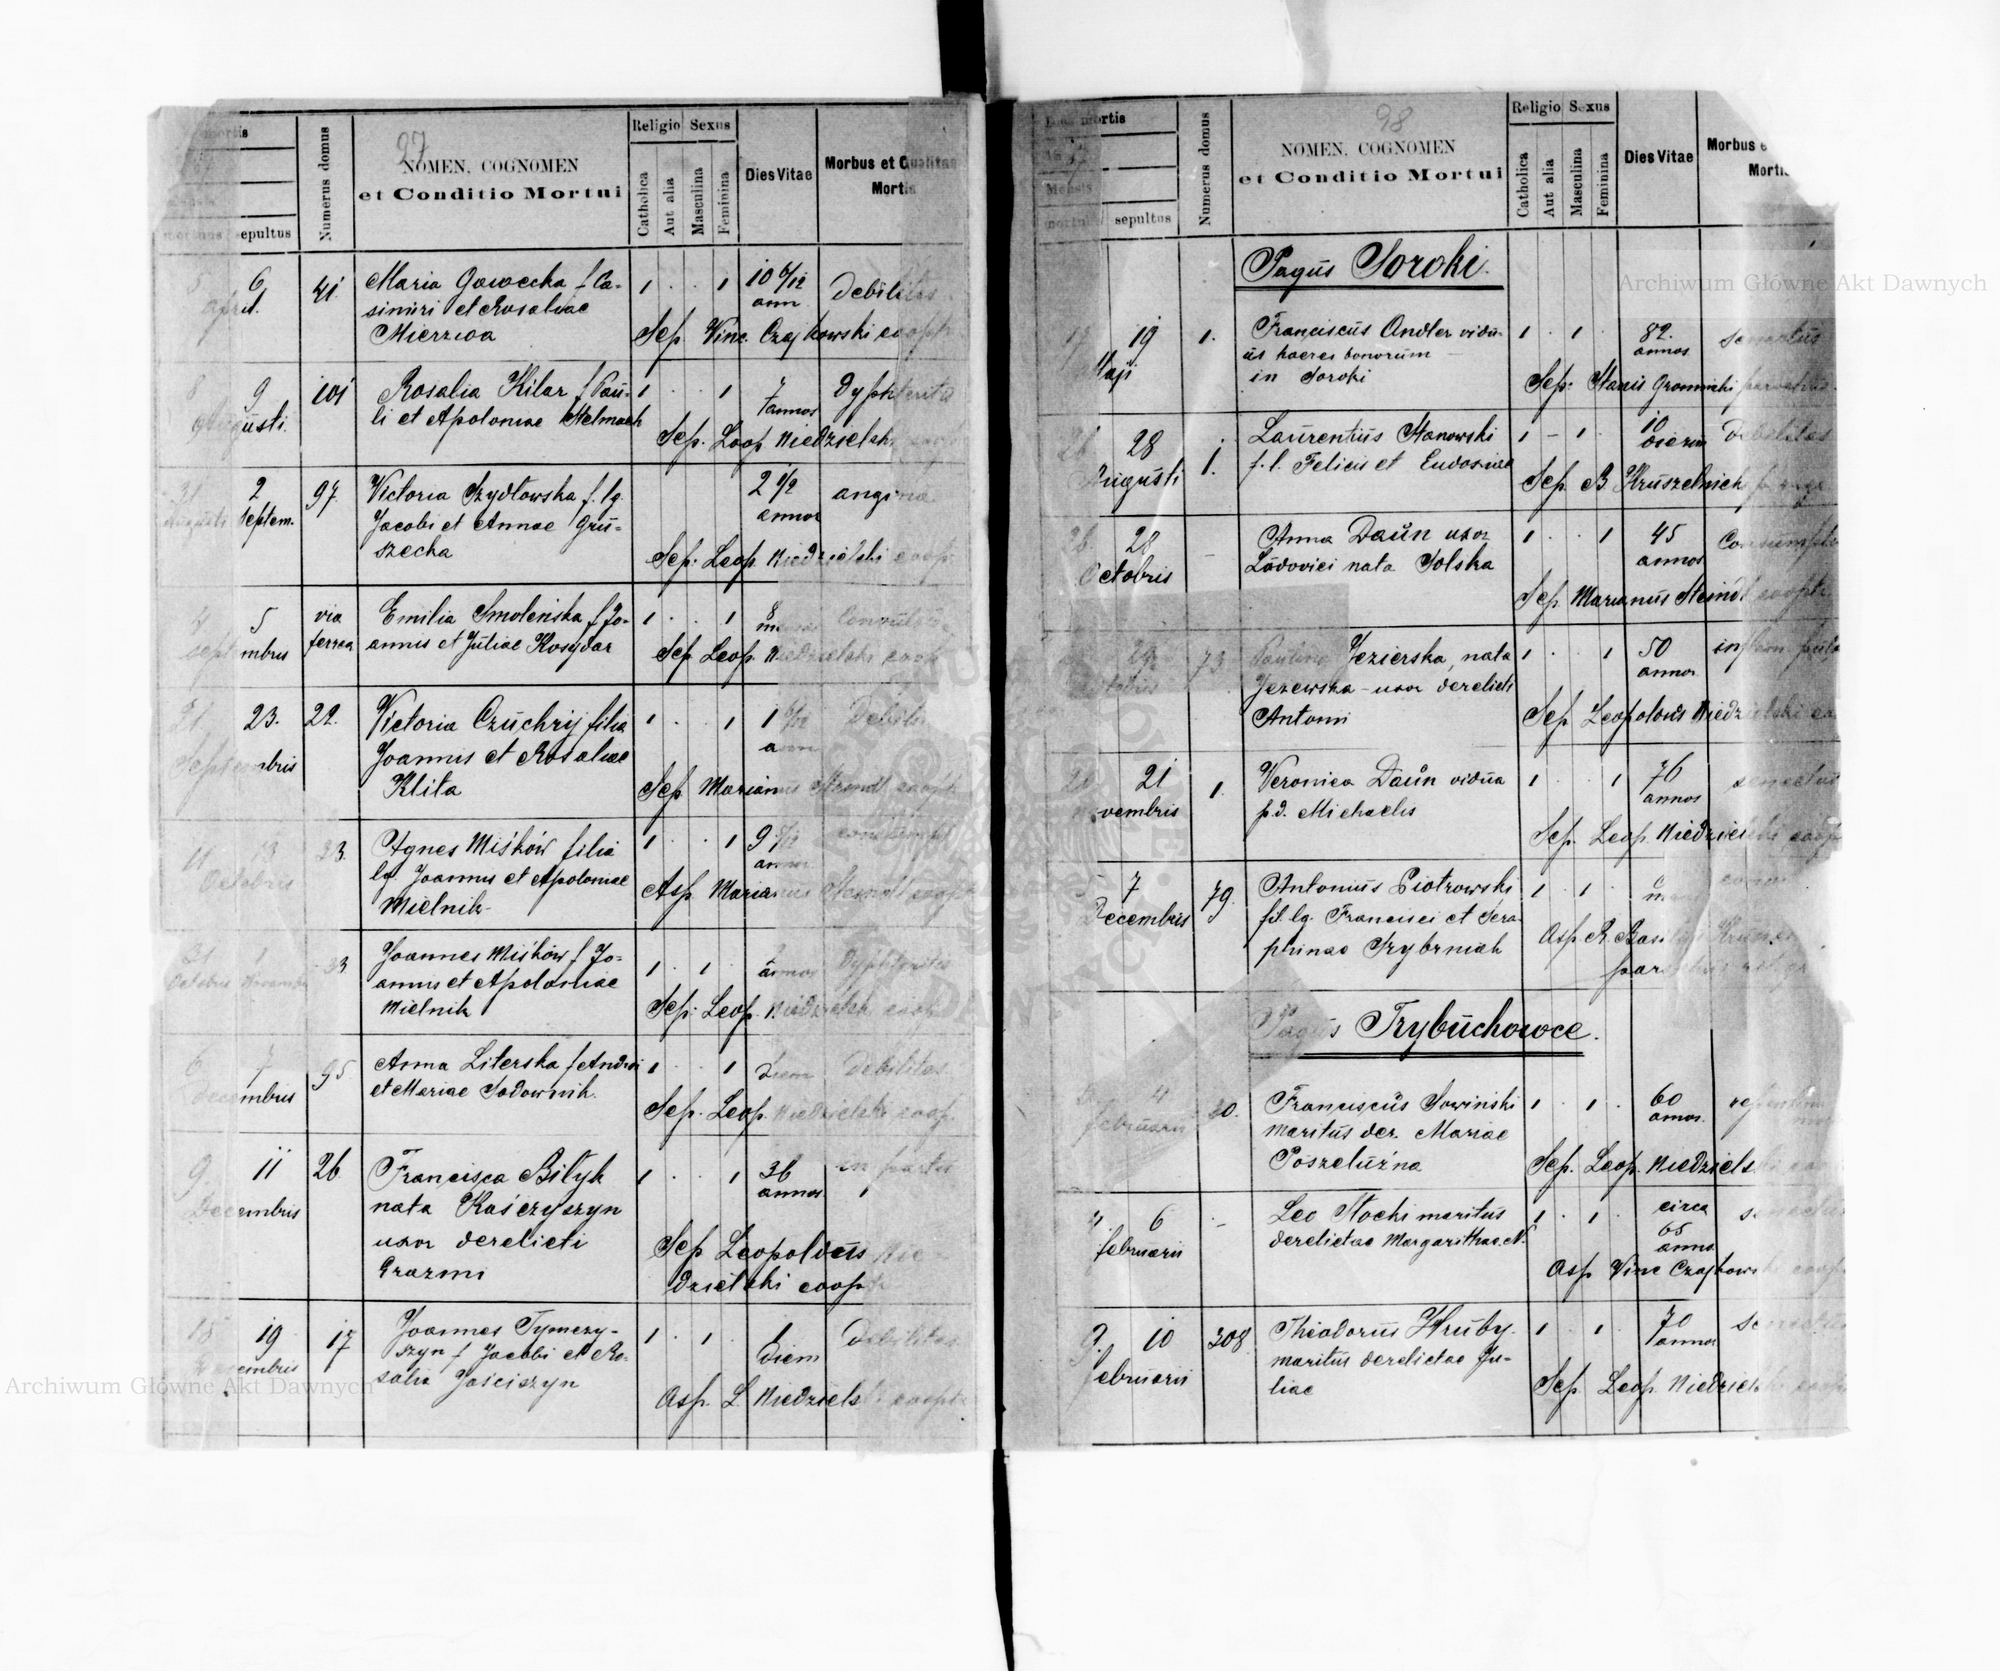 27
mortis
sepultus
Numerus domus
NOMEN, COGNOMEN
et Conditio Mortui
Religio
Sexus
Catholica
Aut alia
Masculina
Feminina
Dies Vitae
Morbus et Qualitas
Mortis
5 6 41 Maria Gawecka f Ca- 1 . . 1 10 6/12 Debilitas
april. simiri et Rosaliae ann
Mierzwa Sep. Vinc. Czajkowski coop
8 9 101 Rosalia Kilar f Pau- 1 . . 1 7 Dyphteritis
Augusti. li et Apoloniae Stelmach annos
Sep. Leop. Niedzielski coop
31 2 97 Victoria Szydłowska f. lg. 2 1/2 angina
Augusti Septem. Jacobi et Annae Gru- annos
szecka Sep. Leop. Niedzielski coop.
5 via Emilia Smoleńska f Jo- 1 . . 1 8
septembris ferrea annis et Juliae Kosydar Sep. Leop. Niedzielski coop
21 23. 22. Victoria Czuchrij filia 1 . . 1 1 6/12 Debilitas
Septembris Joannis et Rosaliae ann
Klita Sep Marianus Steindl coopt
11 13 33. Agnes Miśków filia 1 . . 1 9
Octobris lg. Joannis et Apoloniae annos
Mielnik Asp. Marianus Steindl coopt
31 1 33 Joannes Miśków f Jo- 1 . 1 Dyphteritis
Octobris Novembris annis et Apoloniae annos
Mielnik Sep. Leop. Niedzielski coop
6 7 95 Anna Literska f Andrei 1 . . 1 diem Debilitas
Decembris et Mariae Sadownik. Sep. Leop. Niedzielski coop.
9. 11 26 Francisca Bilyk 1 . . 1 36 in partu
Decembris nata Kaśczyszyn annos
uxor derelicti Sep Leopoldus Nie-
Erazmi dzielski coop
18 19 17 Joannes Tymczy- 1 . 1 1 Debilitas
Decembris szyn f Jacobi et Ro- diem
salia Jaściszyn Asp. L. Niedzielski coopt
98
Dies mortis
Mensis
mortuus
sepultus
Numerus domus
NOMEN, COGNOMEN
et Conditio Mortui
Religio
Sexus
Catholica
Aut alia
Masculina
Feminina
Dies Vitae
Morbus e
Mortis
Pagus Soroki.
17 19 1. Franciscus Andler vidu- 1 . 1 . 82. senectus
Maji us haeres bonorum annos
in Soroki Sep: Stanis Gromnicki parochus
28 Laurentius Stanowski 1 - 1 . 10 Debilitas
Augusti 1. f. l. Felicis et Eudosiae dierum
Sep. B. Kruszelnicki
26. 28 - Anna Daün uxor 1 . . 1 45 Consumptio
Octobris Ludovici nata Solska annos
Sep Marianus Steindl coopt.
29 73 Paulina Jezierska, nata 1 . . 1 50 inflam. pulm
Octobris Jezewska - uxor derelicti annos
Antoni Sep Leopoldus Niedzielski
21 1. Veronica Daün vidua 1 . . 1 76 senectus
Novembris p.d. Michaelis annos
Sep. Leop. Niedzielski coop
7 79. Antonius Piotrowski 1 . 1
Decembris fil. lg. Francisci et Sera-
phinae Trybrniak Asp. R.
Pagus Trybuchowce.
4 30. Franciscus Sowiński 1 . 1 . 60
februarii maritus der. Mariae annos.
Poszeluźna Sep. Leop. Niedzielski
4. 6 - Leo Stocki maritus 1 . 1 . circa senectus
februarii derelictae Margarithae N. 65
annos.
Asp Vinc Czajkowski coop
9. 10 308 Theodorus Hruby. 1 . 1 70 senectus
februarii maritus derelictae Ju- annos
liae Sep Leop. Niedzielski coop
Archiwum Główne Akt Dawnych
Archiwum Główne Akt Dawnych